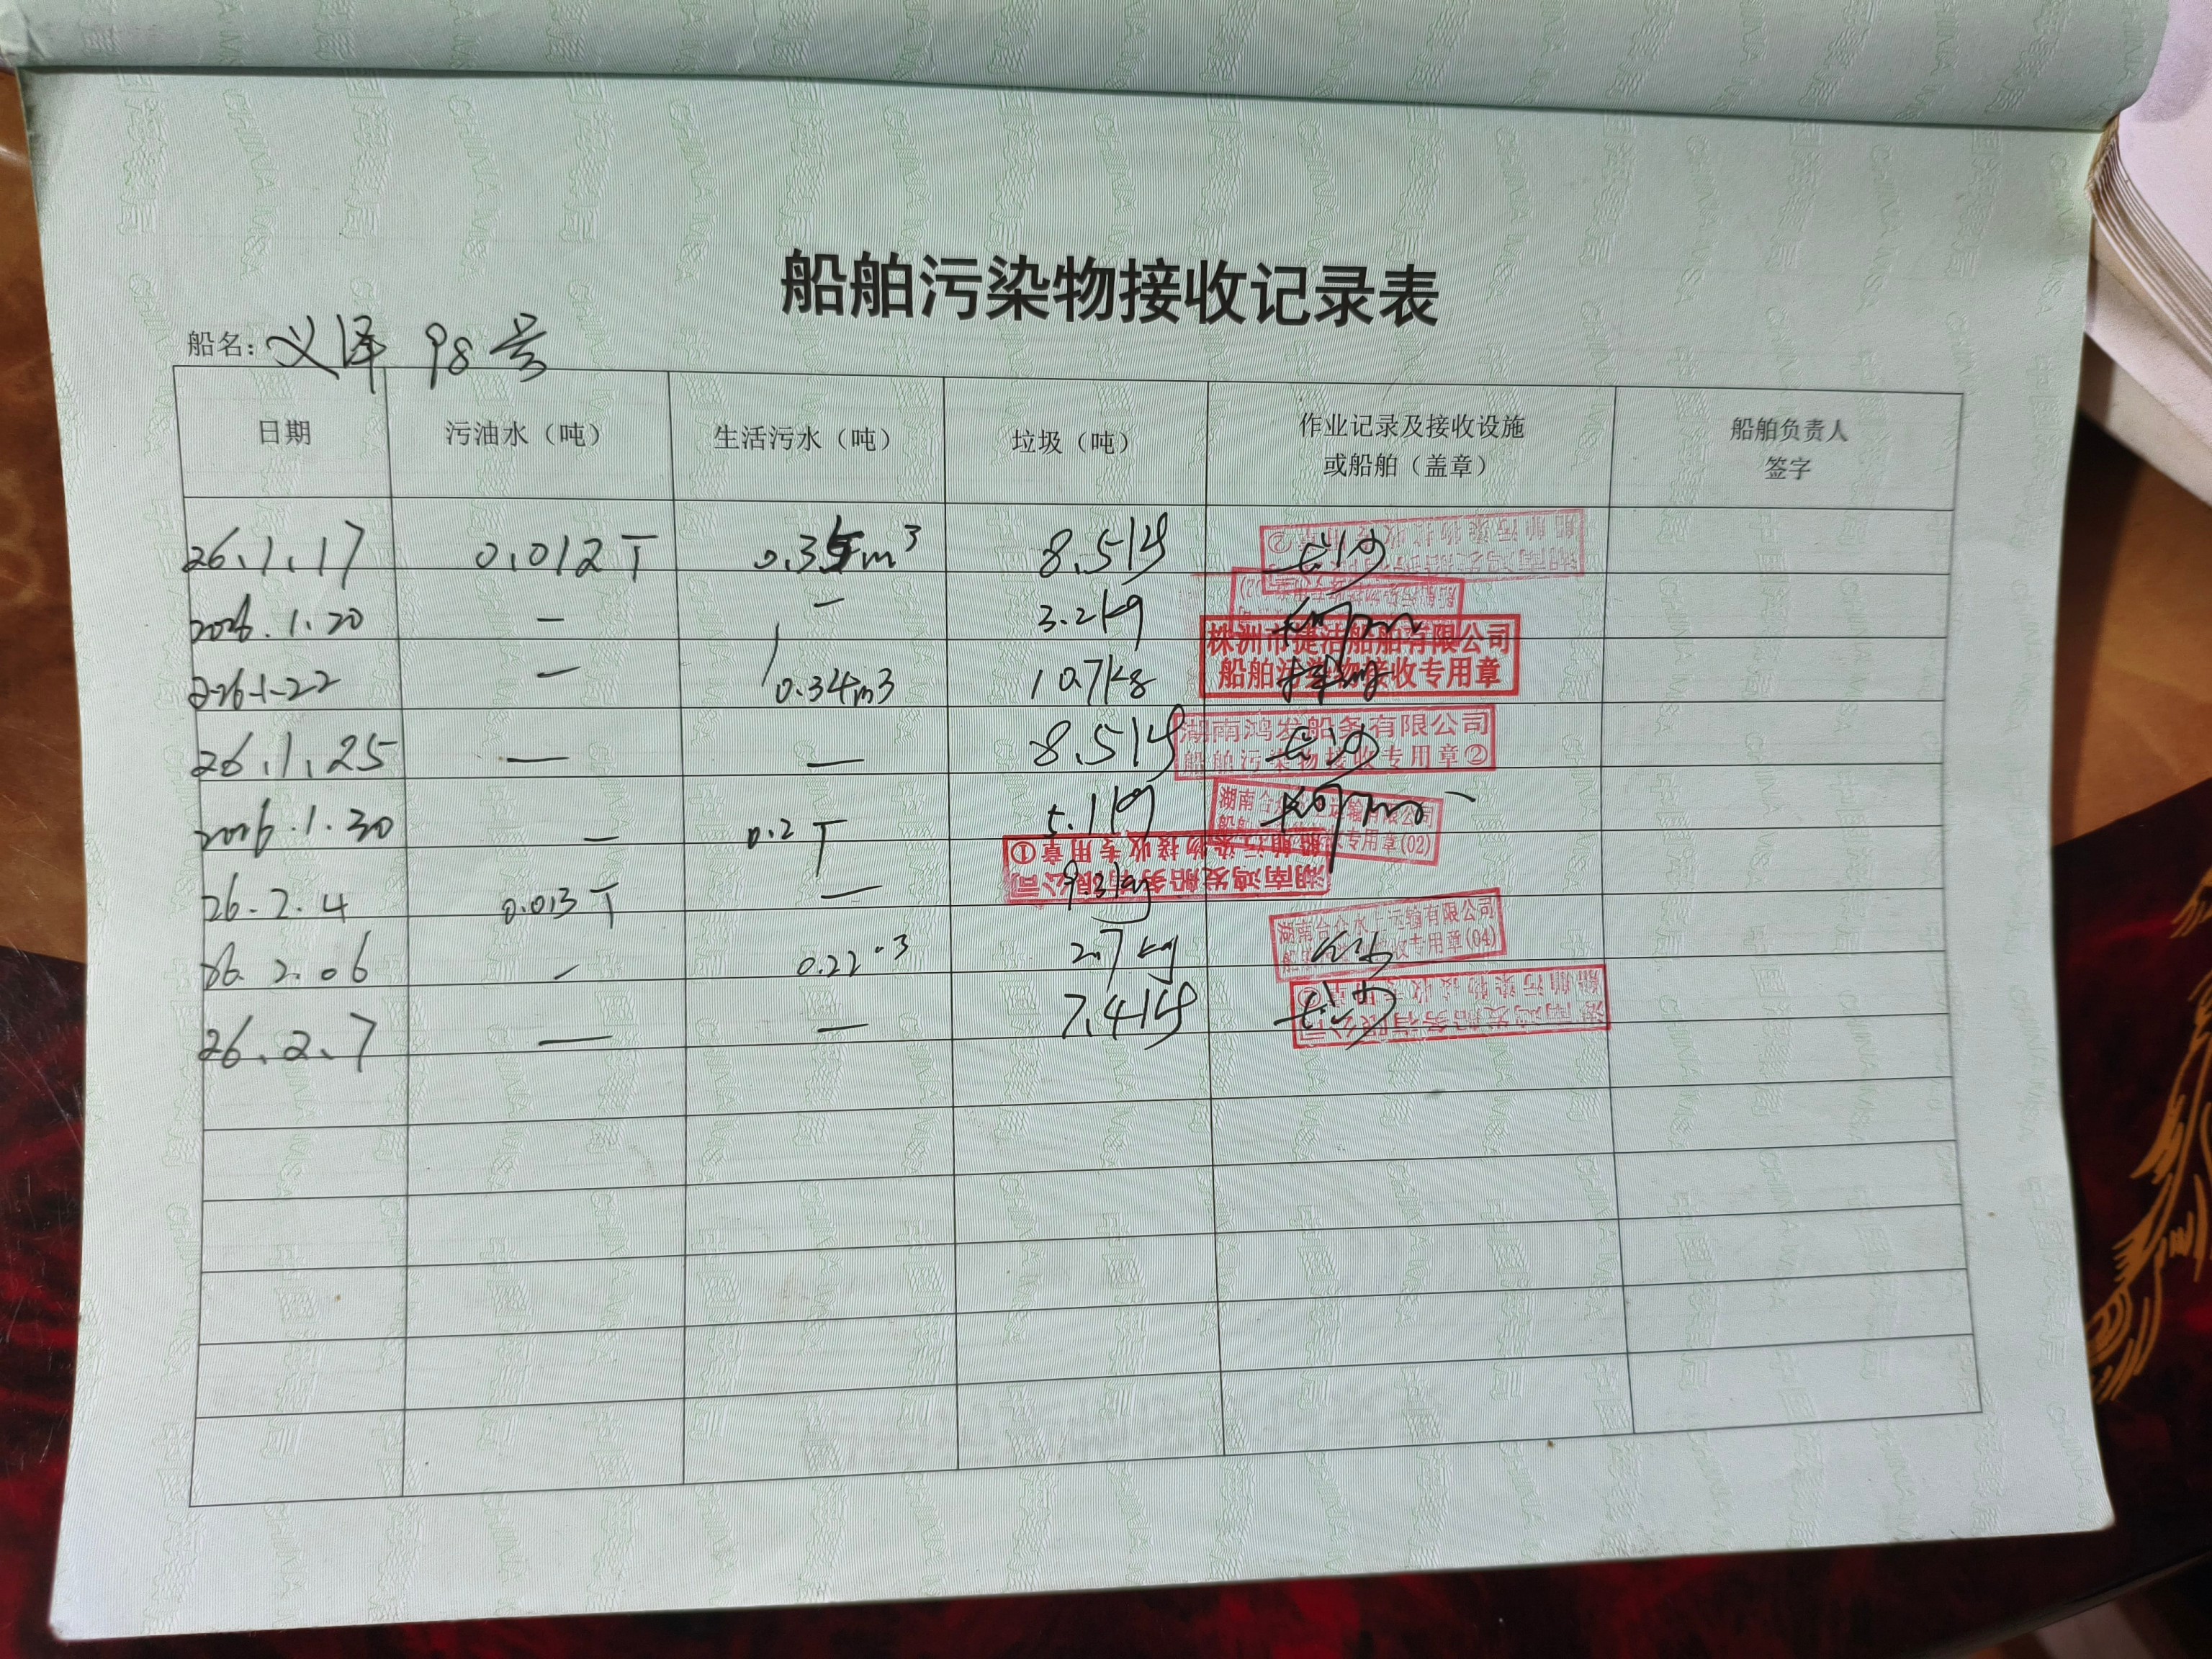 船舶污染物接收记录表
船名: 义泽 98号
日期 污油水（吨） 生活污水（吨） 垃圾（吨） 作业记录及接收设施或船舶（盖章） 船舶负责人签字
26.1.17 0.012T 0.35m³ 8.5kg 长沙
2026.1.20 — — 3.2kg
2026.1.22 — 0.34m3 10.7kg 株洲市捷洁船舶有限公司 船舶污染物接收专用章
26.1.25 — — 8.5kg 长沙 湖南鸿发船务有限公司 船舶污染物接收专用章②
2026.1.30 — 0.2T 5.1kg 湖南合众水上运输有限公司 专用章(02)
26.2.4 0.013T — 9.3kg 湖南鸿发船务有限公司 船舶污染物接收专用章①
26.2.06 — 0.22 m3 2.7kg 长沙 湖南合众水上运输有限公司 接收专用章(04)
26.2.7 — — 7.4kg 长沙 湖南鸿发船务有限公司 船舶污染物接收专用章②